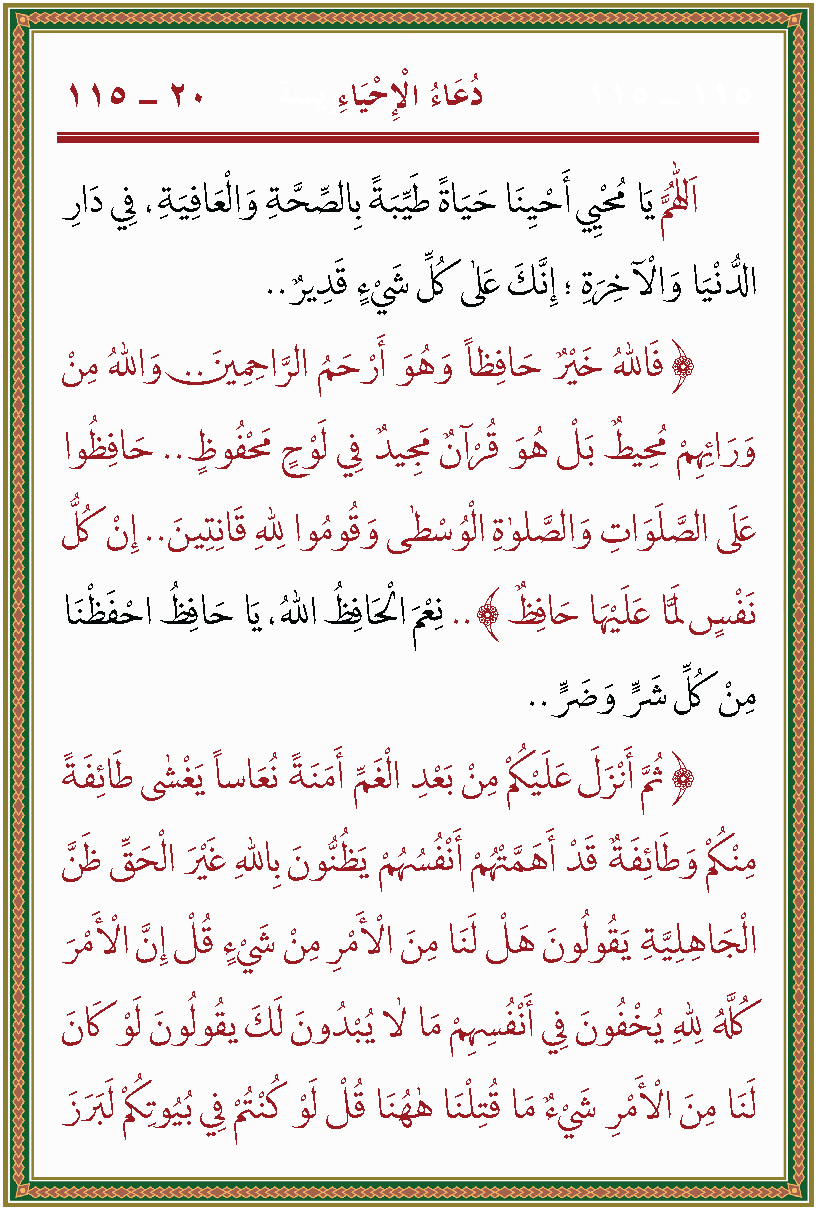 دُعَاءُ الْإِحْيَاءِ ٢٠ ــ ١١٥
اَللّٰهُمَّ يَا مُحْيِي أَحْيِنَا حَيَاةً طَيِّبَةً بِالصِّحَّةِ وَالْعَافِيَةِ ، فِي دَارِ
الدُّنْيَا وَالْآخِرَةِ ؛ إِنَّكَ عَلٰى كُلِّ شَيْءٍ قَدِيرٌ ..
﴿ فَاللهُ خَيْرٌ حَافِظاً وَهُوَ أَرْحَمُ الرَّاحِمِينَ.. وَاللهُ مِنْ
وَرَائِهِمْ مُحِيطٌ بَلْ هُوَ قُرْآنٌ مَجِيدٌ فِي لَوْحٍ مَحْفُوظٍ .. حَافِظُوا
عَلَى الصَّلَوَاتِ وَالصَّلٰوةِ الْوُسْطٰى وَقُومُوا لِلهِ قَانِتِينَ.. إِنْ كُلُّ
نَفْسٍ لَمَّا عَلَيْهَا حَافِظٌ ﴾ .. نِعْمَ الْحَافِظُ اللهُ، يَا حَافِظُ احْفَظْنَا
مِنْ كُلِّ شَرٍّ وَضَرٍّ ..
﴿ ثُمَّ أَنْزَلَ عَلَيْكُمْ مِنْ بَعْدِ الْغَمِّ أَمَنَةً نُعَاساً يَغْشٰى طَائِفَةً
مِنْكُمْ وَطَائِفَةٌ قَدْ أَهَمَّتْهُمْ أَنْفُسُهُمْ يَظُنُّونَ بِاللهِ غَيْرَ الْحَقِّ ظَنَّ
الْجَاهِلِيَّةِ يَقُولُونَ هَلْ لَنَا مِنَ الْأَمْرِ مِنْ شَيْءٍ قُلْ إِنَّ الْأَمْرَ
كُلَّهُ لِلهِ يُخْفُونَ فِي أَنْفُسِهِمْ مَا لَا يُبْدُونَ لَكَ يقُولُونَ لَوْ كَانَ
لَنَا مِنَ الْأَمْرِ شَيْءٌ مَا قُتِلْنَا هٰهُنَا قُلْ لَوْ كُنْتُمْ فِي بُيُوتِكُمْ لَبَرَزَ